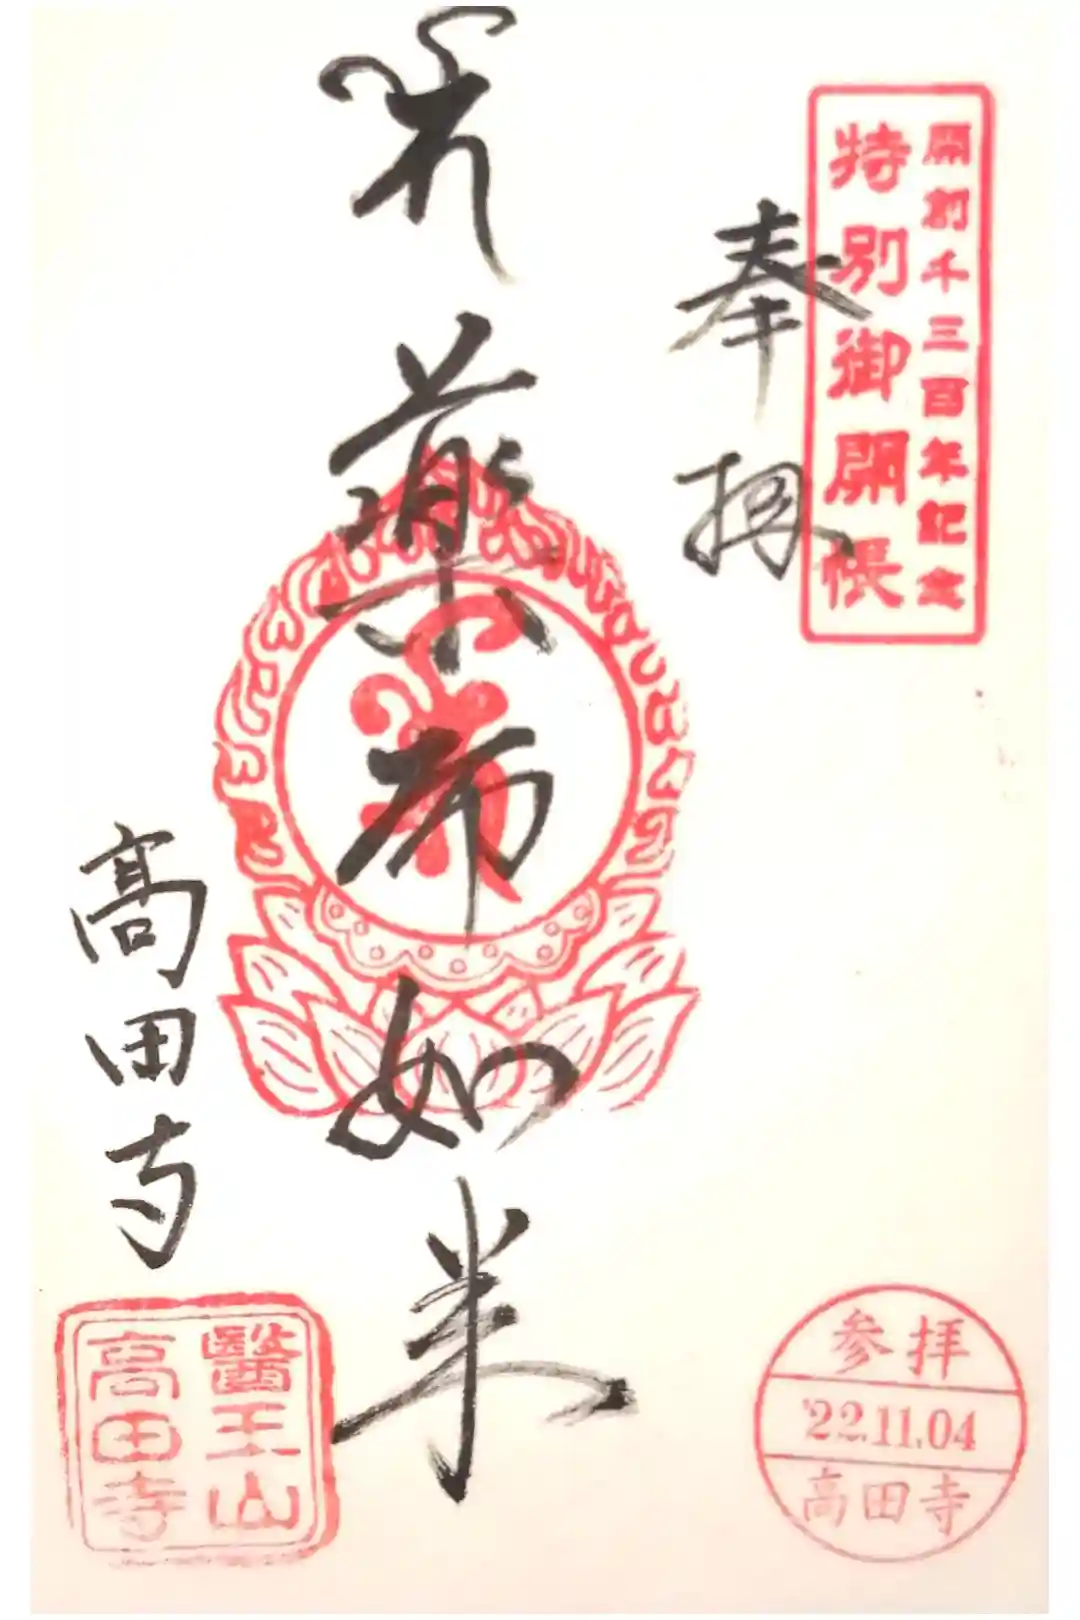 開創千三百年記念
特別御開帳
奉拝
薬師如来
高田寺
醫王山
高田寺
参拝
'22.11.04
高田寺